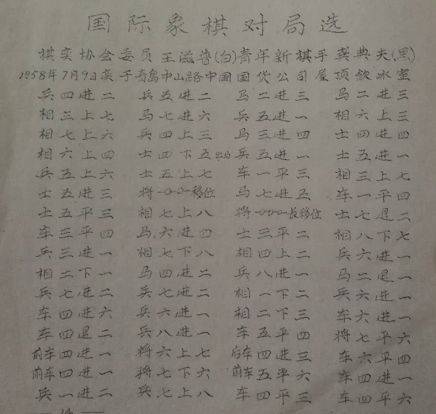 国际象棋对局选
棋实协会委员王滋普(白)青年新棋手龚典夫(黑)
1958年7月9日于青岛中山路中国国货公司屋顶饮冰室
兵四进二 兵五进二 马二进三 马二进三
相三上七 马七进六 兵五进一 相六上三
相七上六 兵四上三 马三进四 士四进四
相六上四 士四下五 兵五进一 士五进一
兵五上六 士五上七 车一平三 相三上七
士五进三 将-0-0-移位 马七进五 车一平四
士五平三 相七上八 将-0-0-0-长移位 士七退二
车三平四 马六进四 士三平二 相八下七
兵三进一 相七下八 相四上二 兵六进一
相二下一 马四进二 兵八进一 马二退一
兵七进二 兵七进二 相一下二 兵六进一
车四进六 兵六进一 相二下三 车六进一
车四退二 兵八进一 车五平四 将七平六
前车四进一 将六上七 后车四进三 车六平四
前车四进一 将七下六 前车五平六 车四进一
兵一进二 兵七上八 车四平三 车四平六